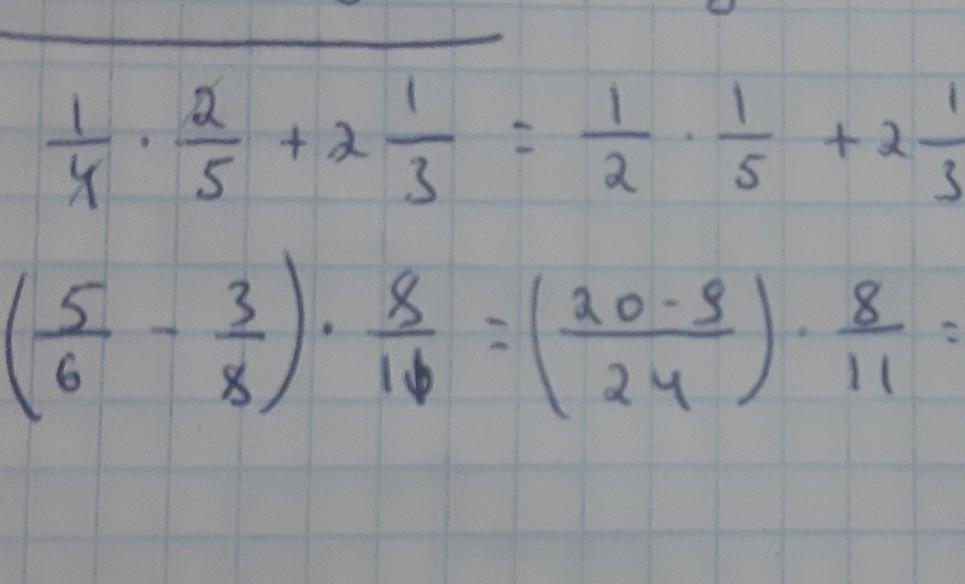 1/4 · 2/5 + 2 1/3 = 1/2 · 1/5 + 2 1/3
(5/6 - 3/8) · 8/11 = (20-9/24) · 8/11 =